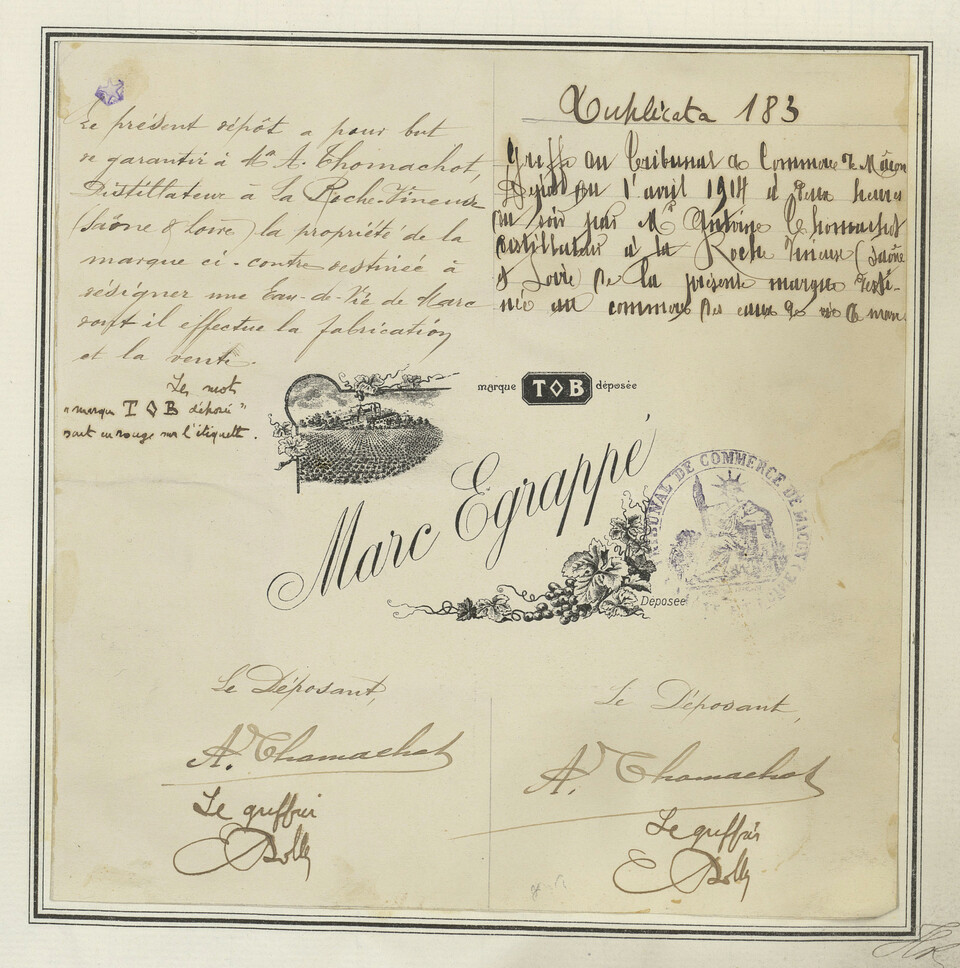 Le présent dépôt a pour but
de garantir à Mr A. Thomachot,
Distillateur à La Roche-Vineuse
(Saône & Loire) la propriété de la
marque ci-contre destinée à
désigner une Eau-de-Vie de Marc
dont il effectue la fabrication
et la vente.
Les mots
"marque T◊B déposée"
sont en rouge sur l'étiquette.
Duplicata 183
Greffe du Tribunal de Commerce de Mâcon
Dépôt du 1er avril 1914 à deux heures
du soir par Mr Antoine Thomachot
distillateur à la Roche Vineuse (Saône
et Loire) de la présente marque desti-
née au commerce des eaux de vie de marc
marque T◊B déposée
Marc Egrappé
Déposée
TRIBUNAL DE COMMERCE DE MACON
Le Déposant,
A. Thomachot
Le greffier
Le Déposant,
A. Thomachot
Le greffier